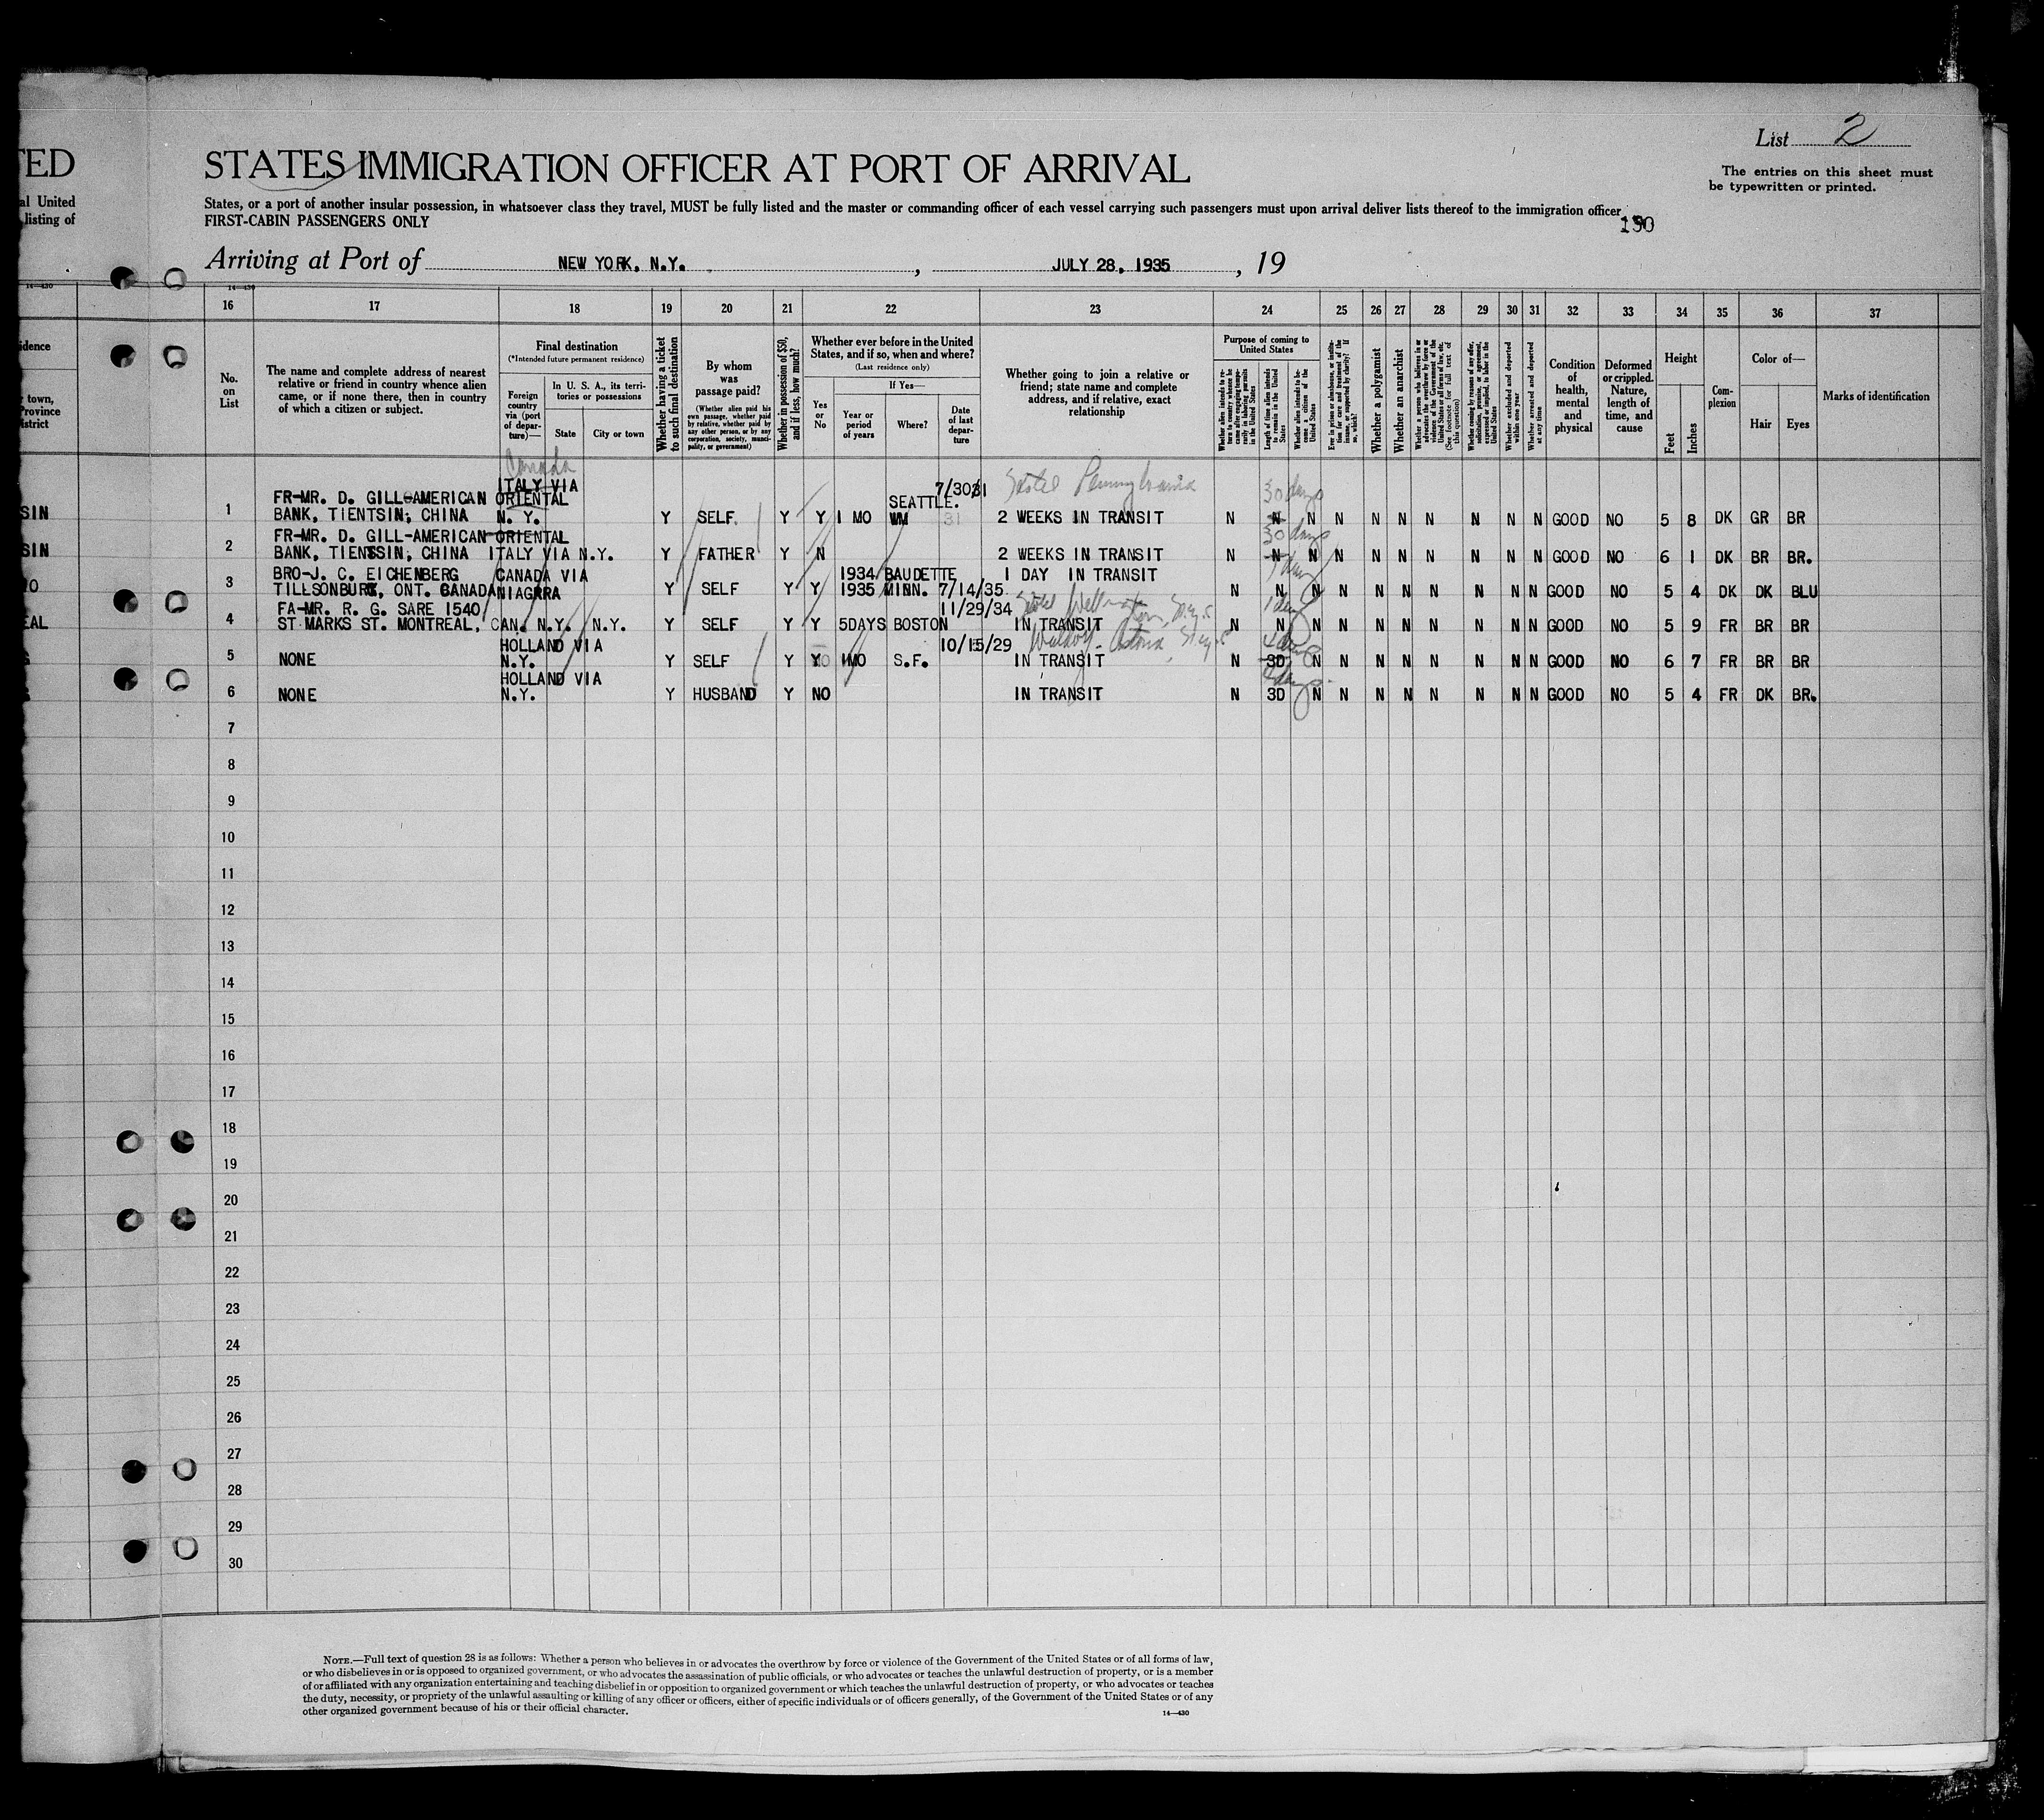 TED
al United
listing of
List 2
The entries on this sheet must
be typewritten or printed.
STATES IMMIGRATION OFFICER AT PORT OF ARRIVAL
States, or a port of another insular possession, in whatsoever class they travel, MUST be fully listed and the master or commanding officer of each vessel carrying such passengers must upon arrival deliver lists thereof to the immigration officer
FIRST-CABIN PASSENGERS ONLY
Arriving at Port of NEW YORK, N.Y. , JULY 28, 1935 , 19
14—430
14—430
16 17 18 19 20 21 22 23 24 25 26 27 28 29 30 31 32 33 34 35 36 37
idence
town,
Province
istrict
No.
on
List
The name and complete address of nearest
relative or friend in country whence alien
came, or if none there, then in country
of which a citizen or subject.
Final destination
(*Intended future permanent residence)
Foreign
country
via (port
of depar-
ture)—
In U. S. A., its terri-
tories or possessions
State
City or town
Whether having a ticket
to such final destination
By whom
was
passage paid?
(Whether alien paid his
own passage, whether paid
by relative, whether paid by
any other person, or by any
corporation, society, munici-
pality, or government)
Whether in possession of $50,
and if less, how much?
Whether ever before in the United
States, and if so, when and where?
(Last residence only)
Yes
or
No
If Yes—
Year or
period
of years
Where?
Date
of last
depar-
ture
Whether going to join a relative or
friend; state name and complete
address, and if relative, exact
relationship
Purpose of coming to
United States
Whether alien intends to re-
turn to country whence he
came after engaging tempo-
rarily in laboring pursuits
in the United States
Length of time alien intends
to remain in the United
States
Whether alien intends to be-
come a citizen of the
United States
Ever in prison or almshouse, or institu-
tion for care and treatment of the
insane, or supported by charity? If
so, which?
Whether a polygamist
Whether an anarchist
Whether a person who believes in or
advocates the overthrow by force or
violence of the Government of the
United States or all forms of law, etc.
(See footnote for full text of
this question)
Whether coming by reasons of any offer,
solicitation, promise, or agreement,
expressed or implied, to labor in the
United States
Whether excluded and deported
within one year
Whether arrested and deported
at any time
Condition
of
health,
mental
and
physical
Deformed
or crippled.
Nature,
length of
time, and
cause
Height
Feet
Inches
Com-
plexion
Color of—
Hair
Eyes
Marks of identification
Canada
ITALY VIA
7/30/31 Hotel Pennsylvania 30 days
FR-MR. D. GILL-AMERICAN ORIENTAL SEATTLE.
SIN 1 BANK, TIENTSIN, CHINA N. Y. Y SELF. Y Y 1 MO 31 2 WEEKS IN TRANSIT N N N N N N N N N N GOOD NO 5 8 DK GR BR
FR-MR. D. GILL-AMERICAN ORIENTAL 30 days
SIN 2 BANK, TIENTSIN, CHINA ITALY VIA N.Y. Y FATHER Y N 2 WEEKS IN TRANSIT N N N N N N N N N N GOOD NO 6 1 DK BR BR.
BRO-J. C. EICHENBERG CANADA VIA 1934 BAUDETTE 1 DAY IN TRANSIT 1 day
3 TILLSONBURG, ONT. CANADA NIAGRRA Y SELF Y Y 1935 MINN. 7/14/35 N N N N N N N N N N GOOD NO 5 4 DK DK BLU
FA-MR. R. G. SARE 1540 11/29/34 Hotel 1 day
EAL 4 ST MARKS ST. MONTREAL, CAN. N.Y. N.Y. Y SELF Y Y 5DAYS BOSTON IN TRANSIT N N N N N N N N N N GOOD NO 5 9 FR BR BR
HOLLAND VIA 10/15/29 Waldorf Astoria
5 NONE N.Y. Y SELF Y Y 1MO S.F. IN TRANSIT N 3D N N N N N N N N GOOD NO 6 7 FR BR BR
HOLLAND VIA
6 NONE N.Y. Y HUSBAND Y NO IN TRANSIT N 3D N N N N N N N N GOOD NO 5 4 FR DK BR.
7
8
9
10
11
12
13
14
15
16
17
18
19
20
21
22
23
24
25
26
27
28
29
30
NOTE.—Full text of question 28 is as follows: Whether a person who believes in or advocates the overthrow by force or violence of the Government of the United States or of all forms of law,
or who disbelieves in or is opposed to organized government, or who advocates the assassination of public officials, or who advocates or teaches the unlawful destruction of property, or is a member
of or affiliated with any organization entertaining and teaching disbelief in or opposition to organized government or which teaches the unlawful destruction of property, or who advocates or teaches
the duty, necessity, or propriety of the unlawful assaulting or killing of any officer or officers, either of specific individuals or of officers generally, of the Government of the United States or of any
other organized government because of his or their official character.
14—430